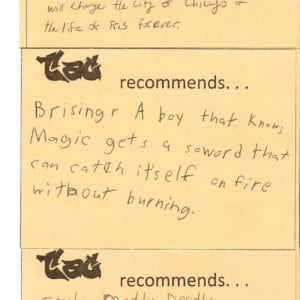 will change the City of Chicago &
the life of Tris forever.
TAG
recommends. . .
Brisingr A boy that knows
Magic gets a soword that
can catch itself on fire
without burning.
TAG
recommends. . .
Deadly